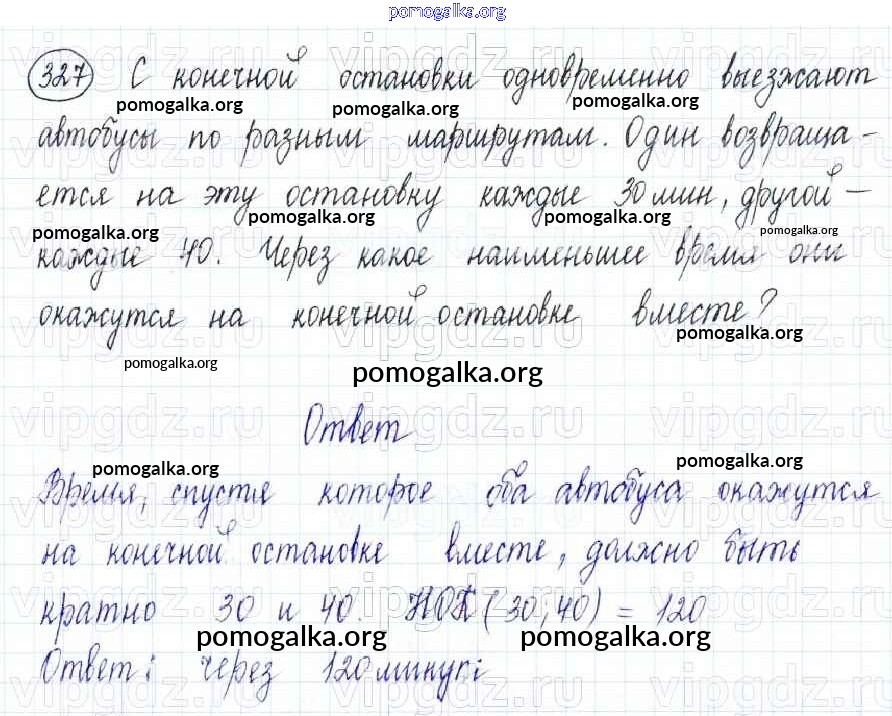 pomogalka.org
327 С конечной остановки одновременно выезжают
pomogalka.org pomogalka.org pomogalka.org
автобусы по разным маршрутам. Один возвраща-
ется на эту остановку каждые 30 мин, другой –
pomogalka.org pomogalka.org pomogalka.org pomogalka.org
каждые 40. Через какое наименьшее время они
окажутся на конечной остановке вместе?
pomogalka.org
pomogalka.org pomogalka.org
Ответ
pomogalka.org pomogalka.org
Время, спустя которое оба автобуса окажутся
на конечной остановке вместе, должно быть
кратно 30 и 40. НОК (30; 40) = 120
pomogalka.org pomogalka.org
Ответ: через 120 минут
vipgdz.ru